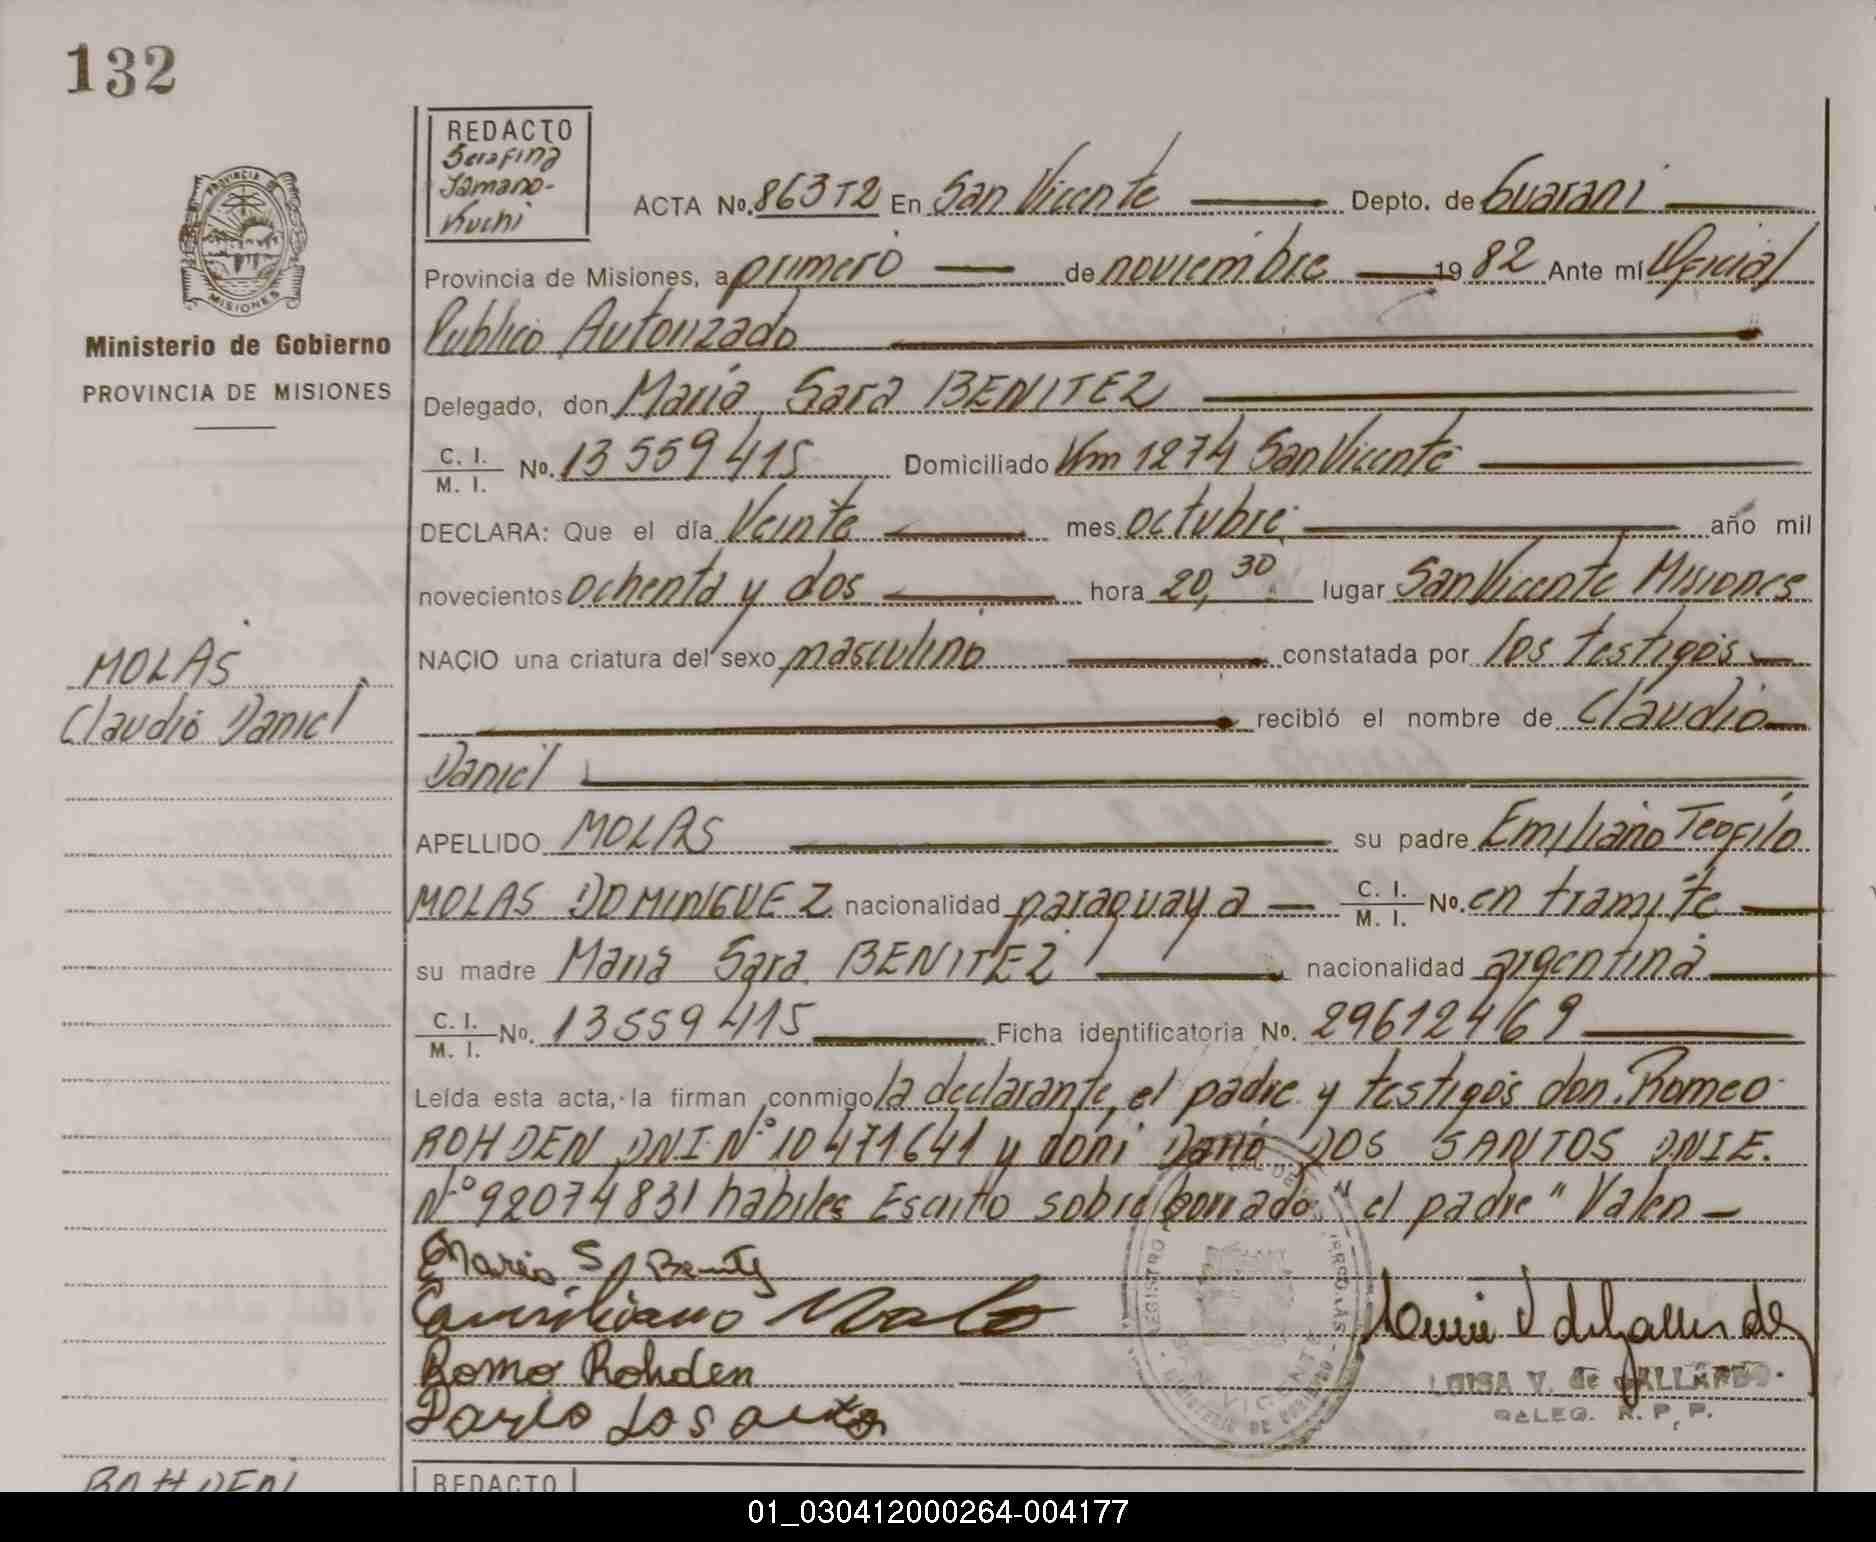 132
REDACTO
Serafina
Tamano-
Kuchi
ACTA No. 863T2 En San Vicente Depto. de Guarani
PROVINCIA DE
MISIONES
Provincia de Misiones, a primero de noviembre 1982 Ante mí Oficial
Ministerio de Gobierno
PROVINCIA DE MISIONES
Publico Autorizado
Delegado, don Maria Sara BENITEZ
C. I.
M. I. No. 13559415 Domiciliado Km 1274 San Vicente
DECLARA: Que el día Veinte mes octubre año mil
novecientos ochenta y dos hora 20,30 lugar San Vicente Misiones
NACIO una criatura del sexo masculino constatada por los testigos
MOLAS
Claudio Daniel
recibió el nombre de Claudio
Daniel
APELLIDO MOLAS su padre Emiliano Teofilo
MOLAS DOMINGUEZ nacionalidad paraguaya C. I. M. I. No. en tramite
su madre Maria Sara BENITEZ nacionalidad argentina
C. I.
M. I. No. 13559415 Ficha identificatoria No. 29612469
Leída esta acta, la firman conmigo la declarante, el padre y testigos don Romeo
ROHDEN DNI Nº 10471641 y don Dario DOS SANTOS D.N.I.E.
Nº 92074831 habiles Escrito sobre borrado el padre" Valen
Maria S Benitez
Emiliano Mola
Romo Rohden
REGISTRO
SAN VICENTE
MINISTERIO DE GOBIERNO
LUISA V. de GALLARDO
DELEG. R. P. P.
ROHDEN
REDACTO
01_030412000264-004177